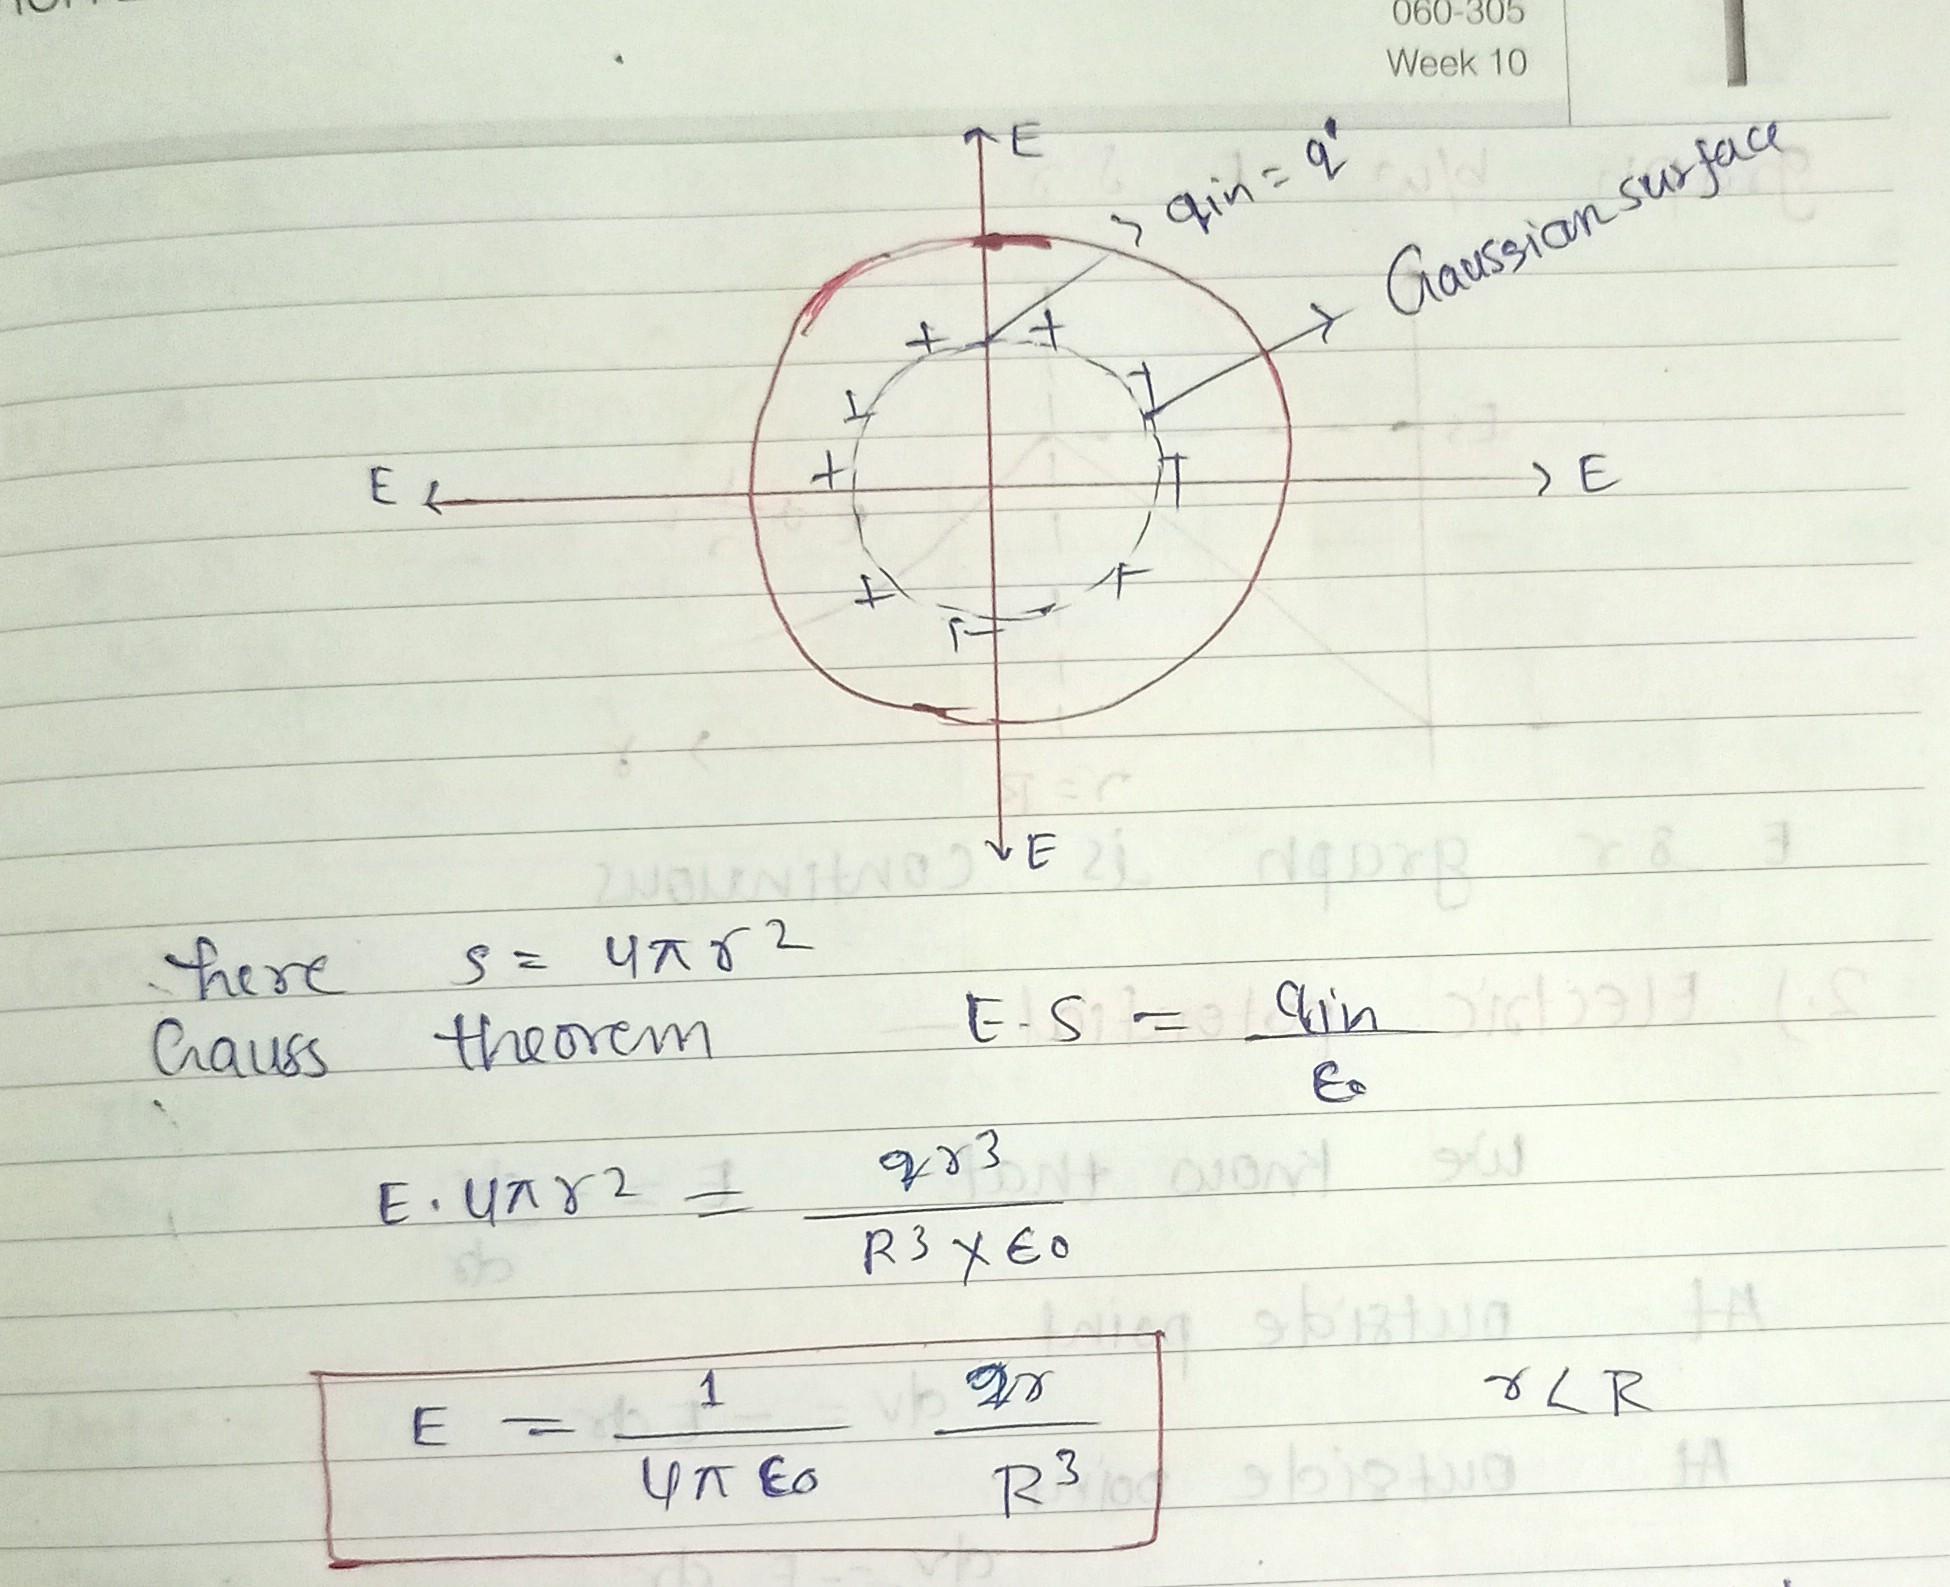 060-305
Week 10
E
qin = q'
Gaussian surface
E
E
E
here s = 4πr2
Gauss theorem E·S = qin / ε0
E·4πr2 = qr3 / R3 × ε0
E = 1 / 4πε0 qr / R3 r < R